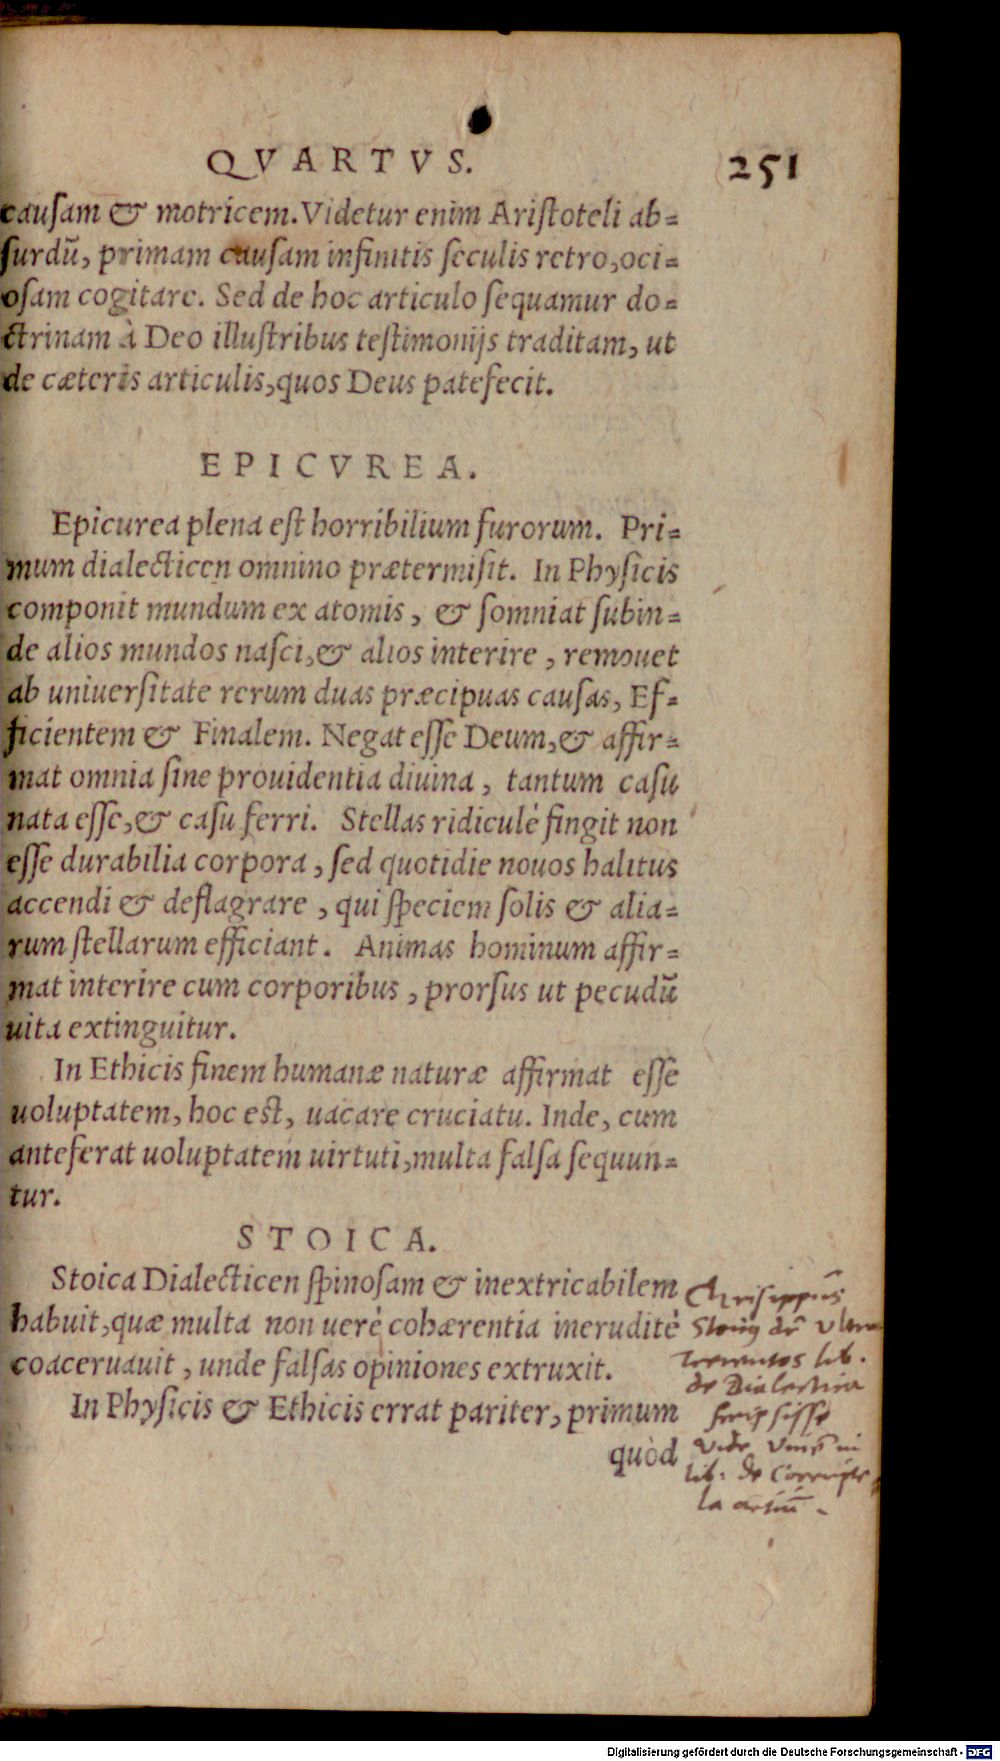 QVARTVS. 251
causam & motricem. Videtur enim Aristoteli ab=
surdũ, primam causam infinitis seculis retro, oci=
osam cogitare. Sed de hoc articulo sequamur do=
ctrinam à Deo illustribus testimonijs traditam, ut
de cæteris articulis, quos Deus patefecit.
EPICVREA.
Epicurea plena est horribilium furorum. Pri=
mum dialecticen omnino prætermisit. In Physicis
componit mundum ex atomis, & somniat subin=
de alios mundos nasci, & alios interire, remouet
ab uniuersitate rerum duas præcipuas causas, Ef=
ficientem & Finalem. Negat esse Deum, & affir=
mat omnia sine prouidentia diuina, tantum casu
nata esse, & casu ferri. Stellas ridiculè fingit non
esse durabilia corpora, sed quotidie nouos halitus
accendi & deflagrare, qui speciem solis & alia=
rum stellarum efficiant. Animas hominum affir=
mat interire cum corporibus, prorsus ut pecudũ
uita extinguitur.
In Ethicis finem humanæ naturæ affirmat esse
uoluptatem, hoc est, uacare cruciatu. Inde, cum
anteferat uoluptatem uirtuti, multa falsa sequun=
tur.
STOICA.
Stoica Dialecticen spinosam & inextricabilem
habuit, quæ multa non uerè cohærentia ineruditè
coaceruauit, unde falsas opiniones extruxit.
In Physicis & Ethicis errat pariter, primum
quòd
Chrisippũs
ultra
trecentos lib.
de Dialectica
scripsisse
vide in
lib. de Corrupte
la artiũ.
Digitalisierung gefördert durch die Deutsche Forschungsgemeinschaft - DFG